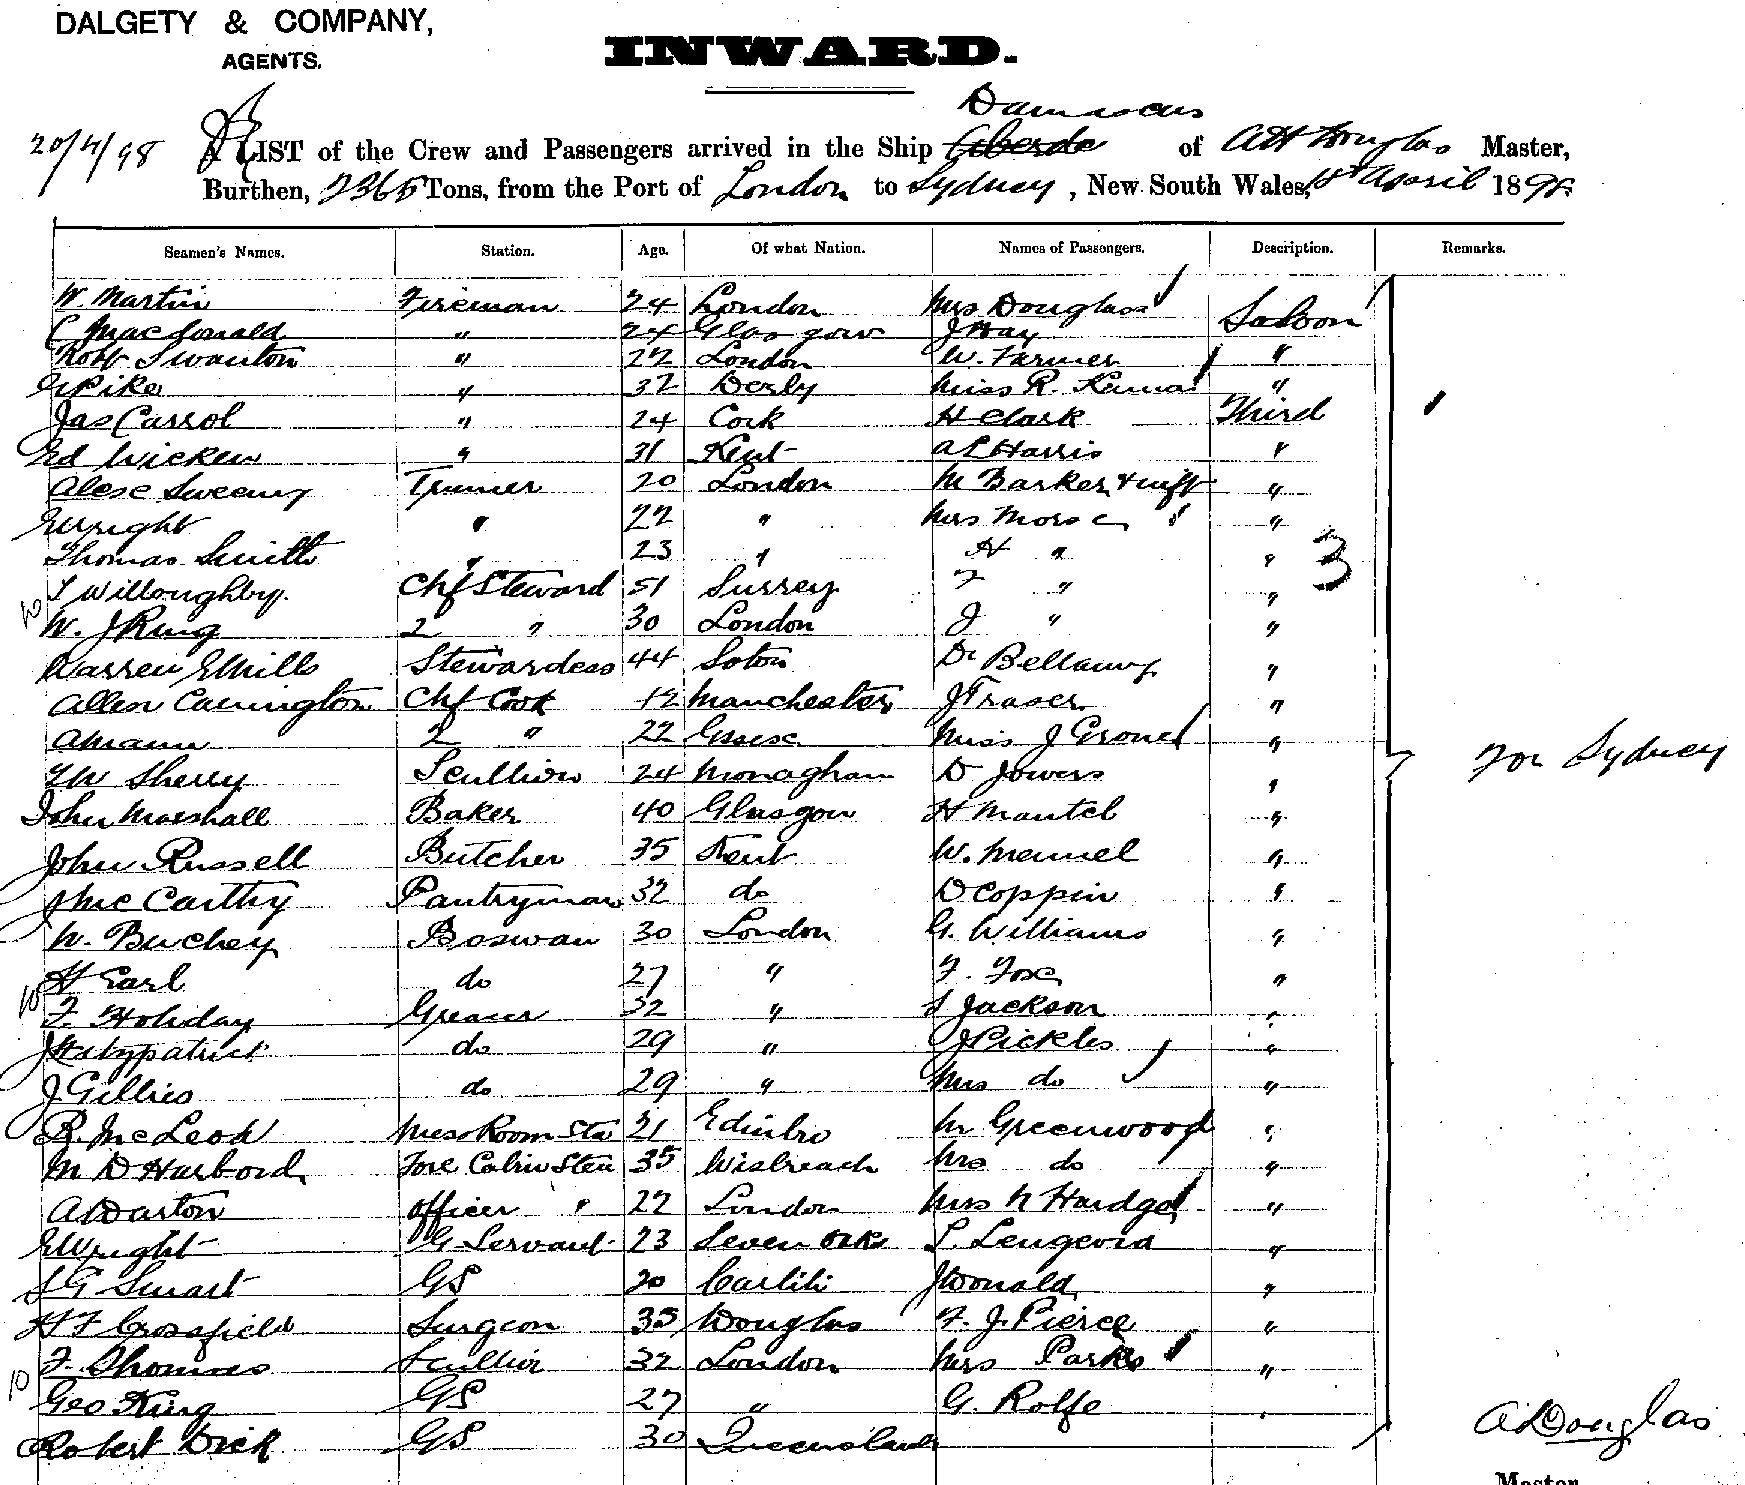 DALGETY & COMPANY,
AGENTS.
INWARD.
Damascus
20/4/98 A LIST of the Crew and Passengers arrived in the Ship Aberde of A H Douglas Master,
Burthen, 2365 Tons, from the Port of London to Sydney, New South Wales, April 1898
Seamen's Names. Station. Age. Of what Nation. Names of Passengers. Description. Remarks.
W. Martin Fireman 24 London Mrs Douglass Saloon
C MacDonald " 24 Glasgow J Hay
Robt Swanton " 22 London W. Farmer "
G Pike " 32 Derby Miss R. "
Jas Carrol " 24 Cork H Clark Third
Ed Wicken " 31 Kent A L Harris "
Alex Sweeny Trimmer 20 London M Barker & wife "
E Wright " 22 " Mrs Morse "
Thomas Smith " 23 " H " " 3
T Willoughby. Chf Steward 51 Surrey F " "
10 W. J King 2 " 30 London J " "
Warren E Mills Stewardess 44 Soton Dr Bellamy "
Allen Carrington Chf Cook 42 Manchester J Fraser "
A Mann 2 " 22 Essex Miss J "
T W Sherry Scullion 24 Monaghan D Jowers "
For Sydney
John Marshall Baker 40 Glasgow H Mantel "
John Russell Butcher 35 Kent W. "
J McCarthy Pantryman 32 do D Coppin "
W. Buchey Boswan 30 London G. Williams "
H Earl do 27 " F. Fox "
10 F. Holiday Greaser 32 " S Jackson "
J Fitzpatrick do 29 " J Pickles "
J Gillies do 29 " Mrs do "
R. McLeod Mess Room Std 21 Edinbro Mr Greenwood "
M D Harbord Fore Cabin Stew 35 Wisbeach Mrs do "
A Darton Officer " 22 London Mrs N "
E Wright G Servant 23 Seven Oks L. "
S G Smart GS 20 Carlile J Donald "
H F Crossfield Surgeon 35 Douglas F. J. Pierce "
F. Thomas Scullion 32 London Mrs Parks "
10 Geo King GS 27 " G. Rolfe "
Robert Dick GS 30 Queensland
A H Douglas
Master